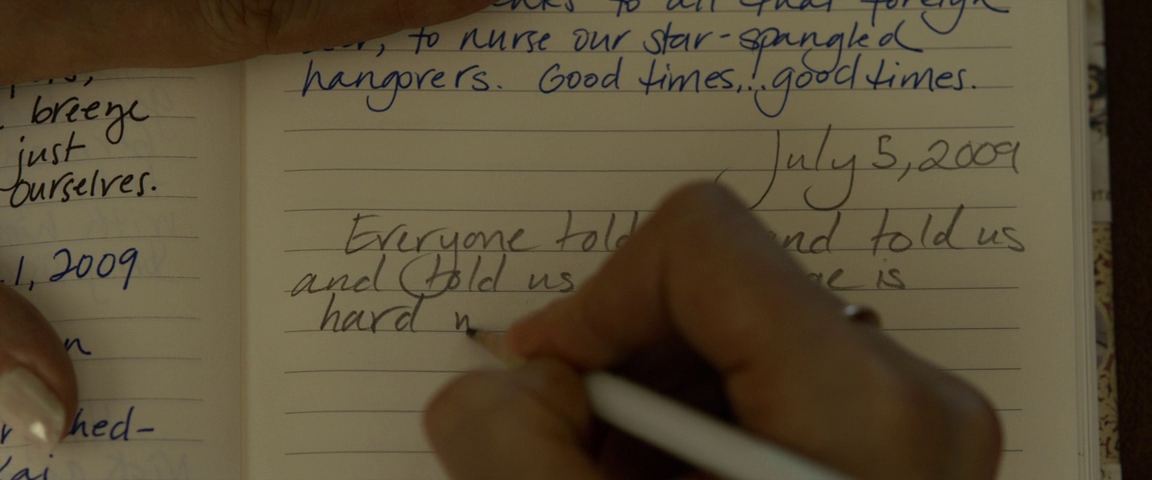 breeze
just
ourselves.
1, 2009
to all that foreign
to nurse our star-spangled
hangovers. Good times... good times.
July 5, 2009
Everyone told and told us
and told us is
hard